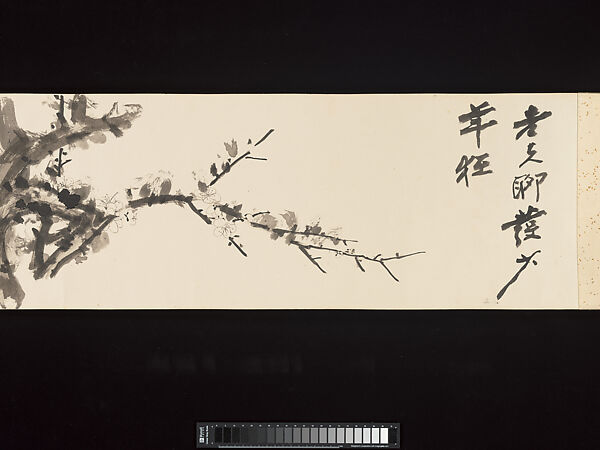 老夫聊發少
年狂